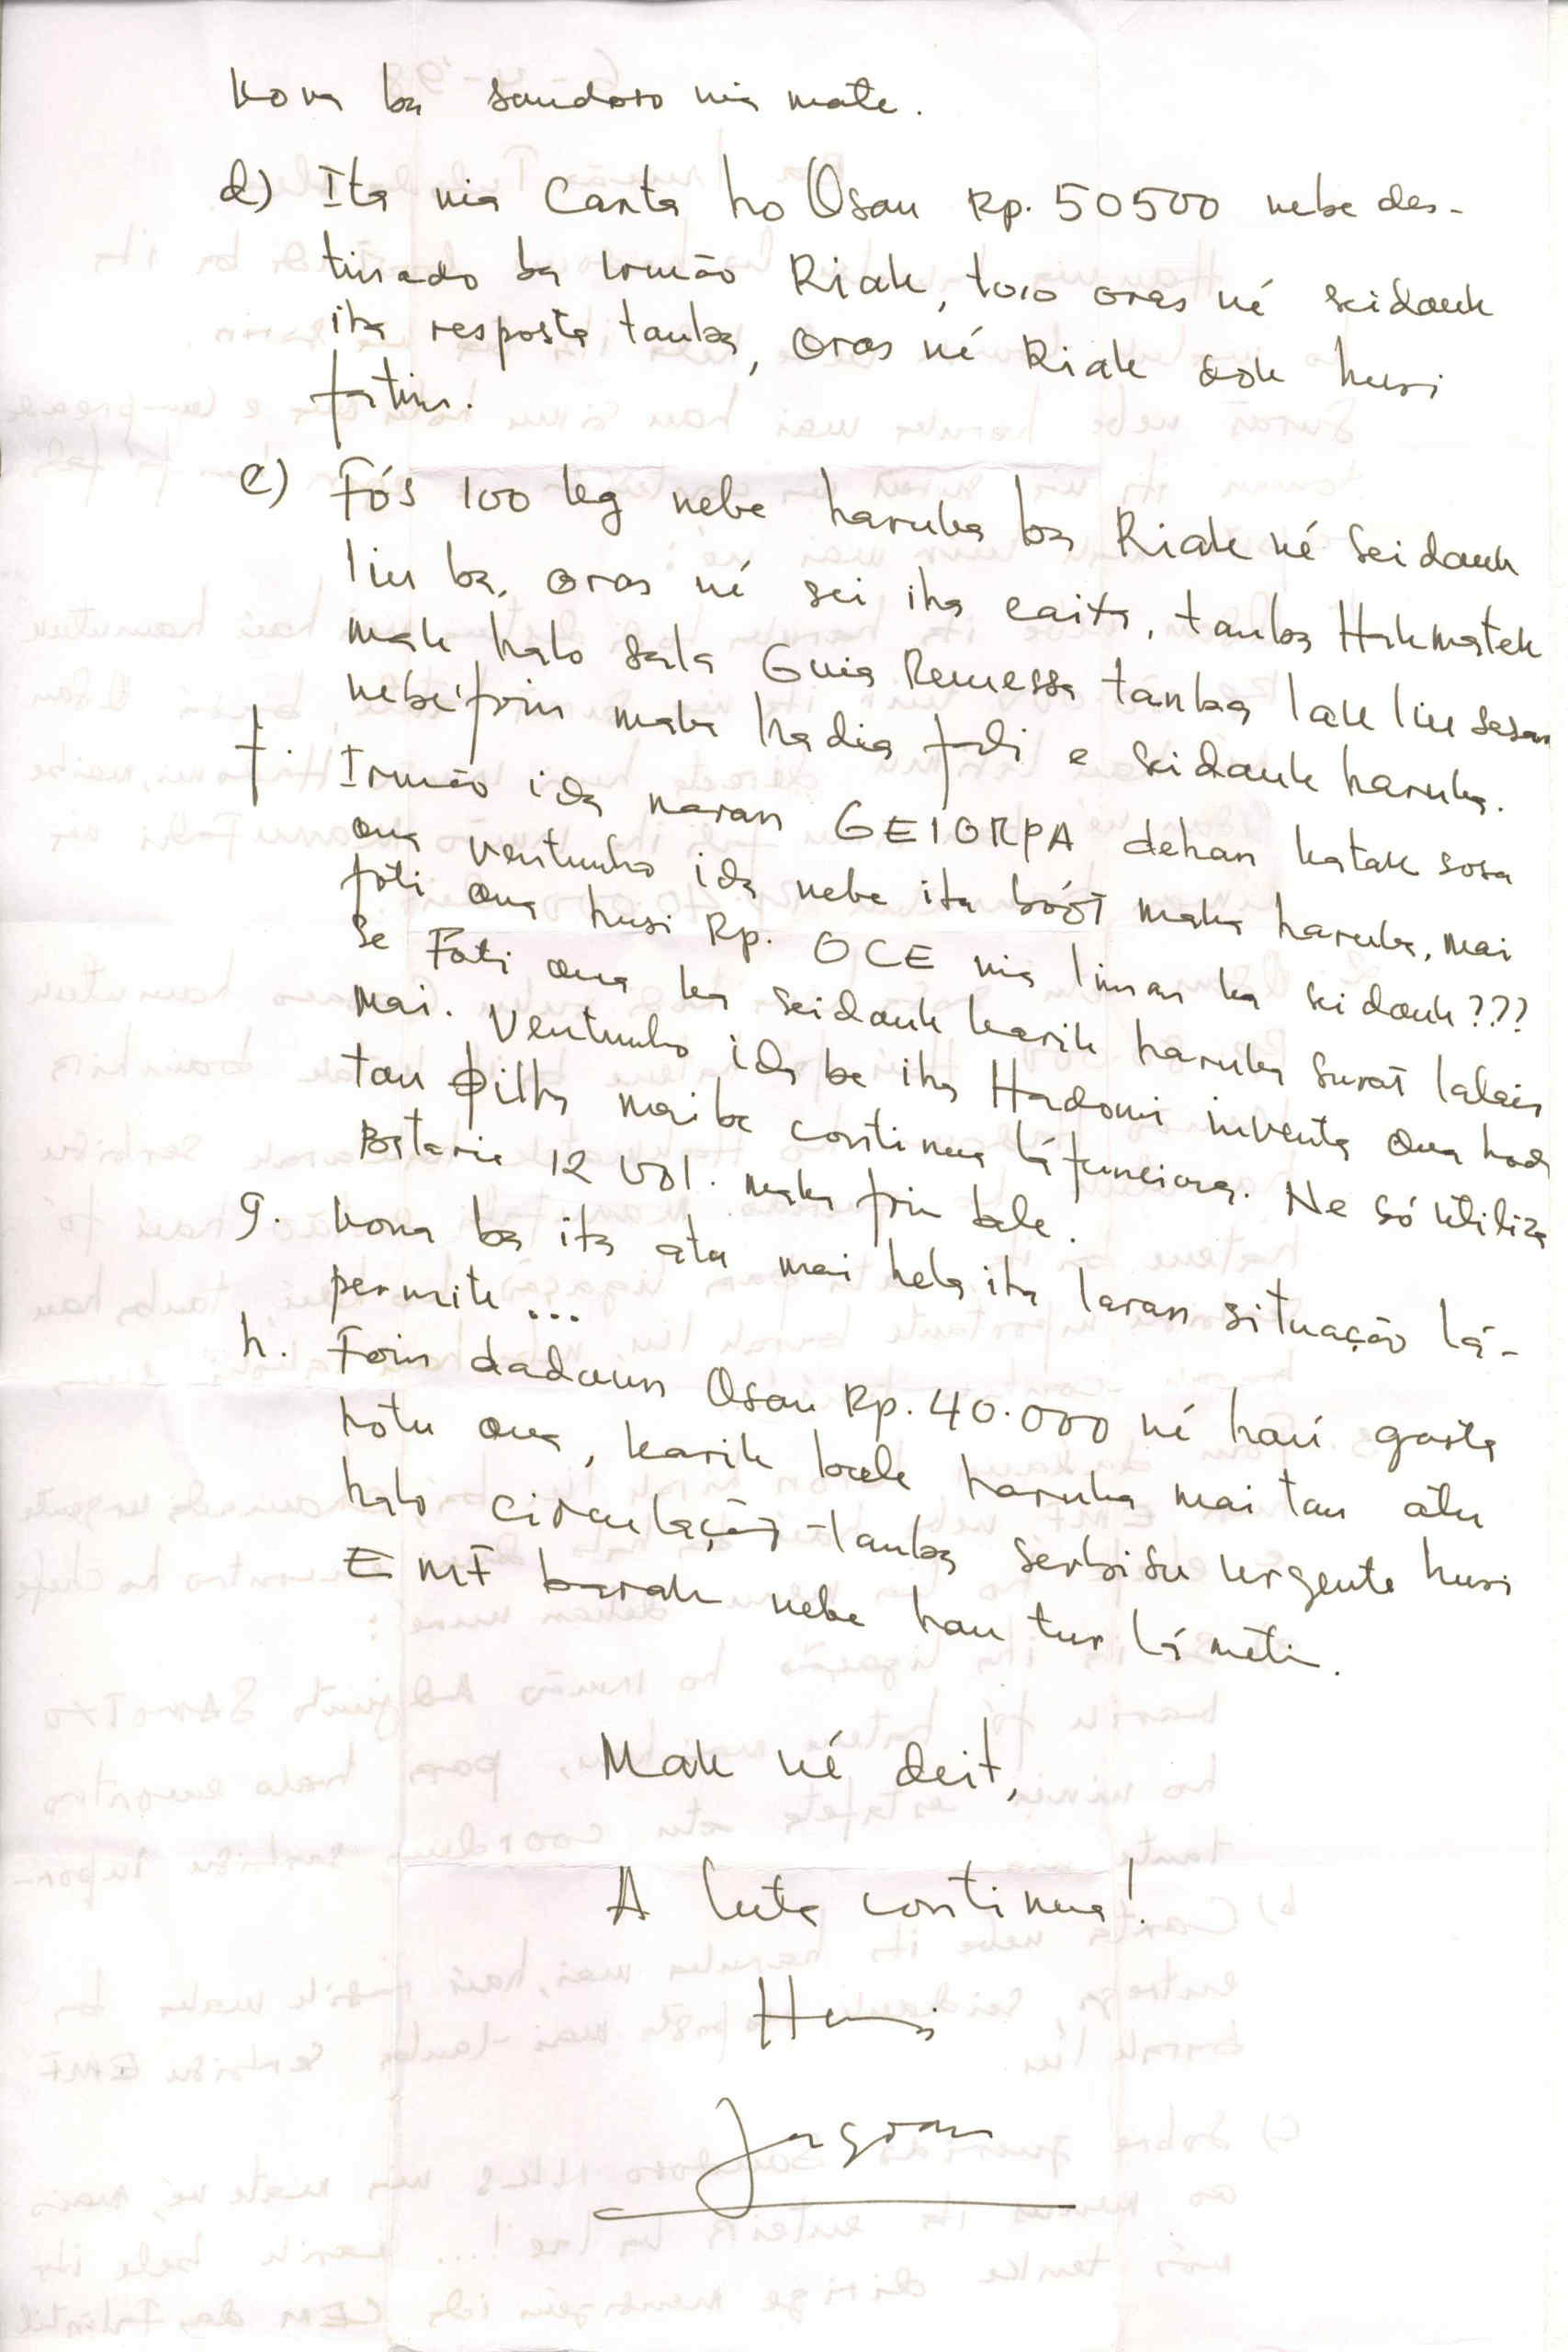 kona ba sandoro nia mate.
d) Ita nia Carta ho Osan Rp. 50500 nebe des-
tinado ba Irmão Riak, to'o oras né seidauk
iha resposta tanba, oras né Riak dok husi
fatin.
e) Fós 100 kg nebe haruka ba Riak né seidauk
liu ba, oras né sei iha caixa, tanba Hakmatek
mak halo sala Guia Remessa tanba lak liu sasan
nebé foin maka hadia fali e seidauk haruka.
f. Irmão ida naran GEIORPA dehan katak sosa
ona ventunho ida nebe ita boót maka haruka, mai
foti ona husi Rp. OCE nia liman ka seidauk???
Se Foti ona ka seidauk karik haruka surat lalais
mai. Ventunho ida be iha Hadomi inventa ona hodi
tau pilha maibe continua lá funciona. Ne só utiliza
Bataria 12 Vol. maka foin bele.
g. Kona ba ita atu mai hela iha laran situação lá-
permite...
h. Foin dadaun Osan Rp. 40.000 né haú gasta
hotu ona, karik bele haruka mai tan atu
halo circulação tanba serbisu urgente husi
EMF barak nebe hau tur lá metin.
Mak né deit,
A luta continua!